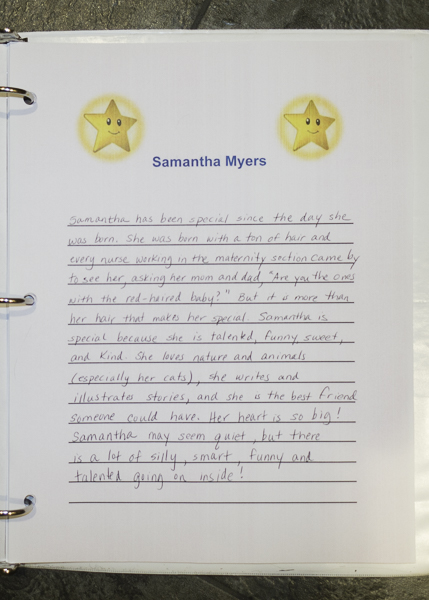 Samantha Myers
Samantha has been special since the day she
was born. She was born with a ton of hair and
every nurse working in the maternity section came by
to see her, asking her mom and dad, "Are you the ones
with the red-haired baby?" But it is more than
her hair that makes her special. Samantha is
special because she is talented, funny, sweet,
and kind. She loves nature and animals
(especially her cats), she writes and
illustrates stories, and she is the best friend
someone could have. Her heart is so big!
Samantha may seem quiet, but there
is a lot of silly, smart, funny and
talented going on inside!